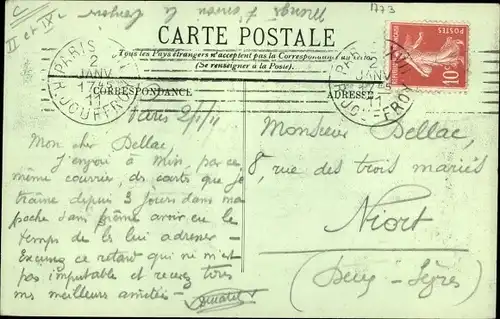 1773
CARTE POSTALE
Tous les Pays étrangers n'acceptent pas la Correspondance au recto
(Se renseigner à la Poste).
CORRESPONDANCE
ADRESSE
PARIS
2
JANV
1745
11
R. JOUFFROY
POSTES
10
Paris 2/1/11
Mon cher Dellac,
J'envoi à Min, par ce
même courrier, des cartes que je
traine depuis 3 jours dans ma
poche sans même avoir eu le
temps de les lui adresser -
Excusez ce retard qui ne m'est
pas imputable et recevez tous
mes meilleurs amitiés -
Monsieur Dellac,
8, rue des trois maries
Niort
(Deux-Sèvres)